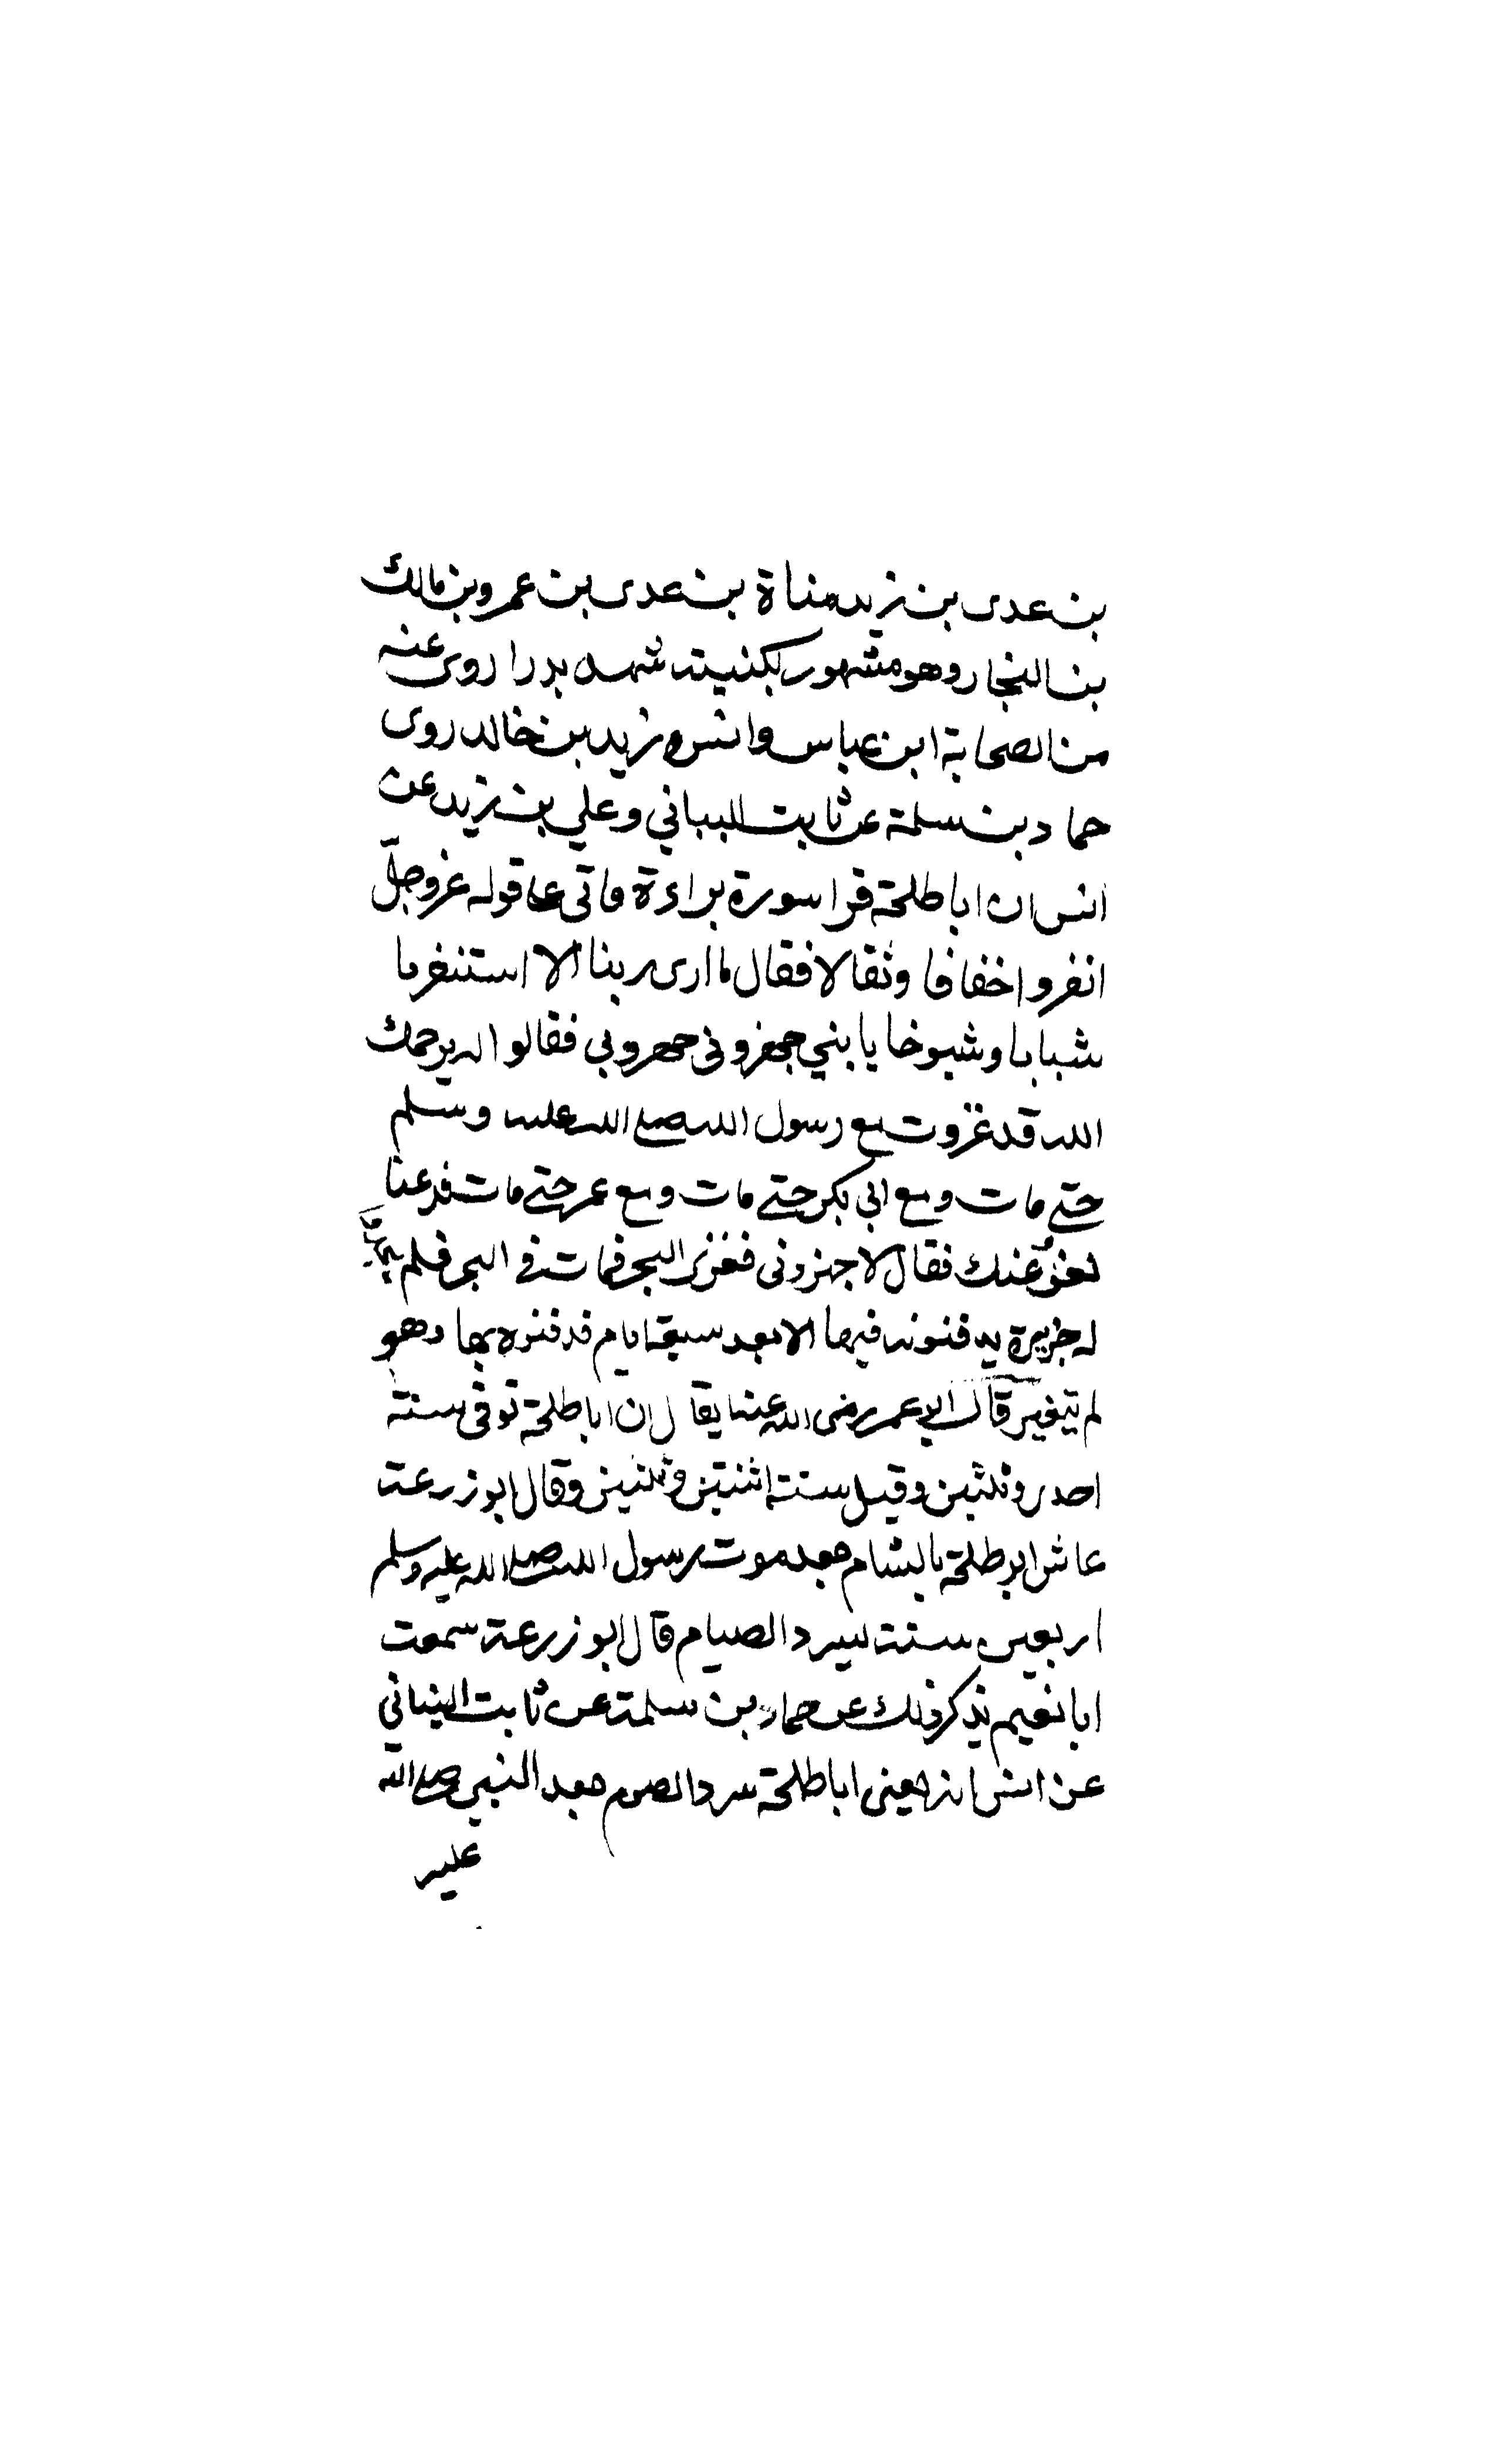 بن عدى بن زيد مناة بن عدى بن عمرو بن مالك
بن النجار وهو مشهور بكنيته شهد بدرا روى عنه
من الصحابة ابن عباس وانس وزيد بن خالد روى
حماد بن سلمة عن ثابت البباني وعلي بن زيد عن
انس ان ابا طلحة قرا سورة براءة فاتى على قوله عز وجلّ
انفروا خفافا وثقالا فقال ما ارى ربنا الا استنفرنا
شبابا وشيوخا يا بني جهزونى جهزوني فقالوا له يرحمك
الله قد غزوت مع رسول الله صلى الله عليه وسلم
حتى مات ومع ابي بكر حتى مات ومع عمر حتى مات فدعنا
نغزُ عنك فقال لا جهزونى فغزى البحر فمات فى البحر فلم
له جزيرة يدفنونه فيها الا بعد سبعة ايام فدفنوه بها وهو
لم يتغير قال ابو عمر رضى الله عنه يقال ان ابا طلحة توفى سنة
احدى وثلثين وقيل سنة اثنتين وثلثين وقال ابو زرعة
عاش ابو طلحة بالشام بعد موت رسول الله صلى الله عليه وسلم
اربعين سنة يسرد الصيام قال ابو زرعة سمعت
ابا نعيم يذكر ذلك عن حماد بن سلمة عن ثابت البناني
عن انس انه يعنى ابا طلحة سرد الصوم بعد النبي صلى الله
عليه